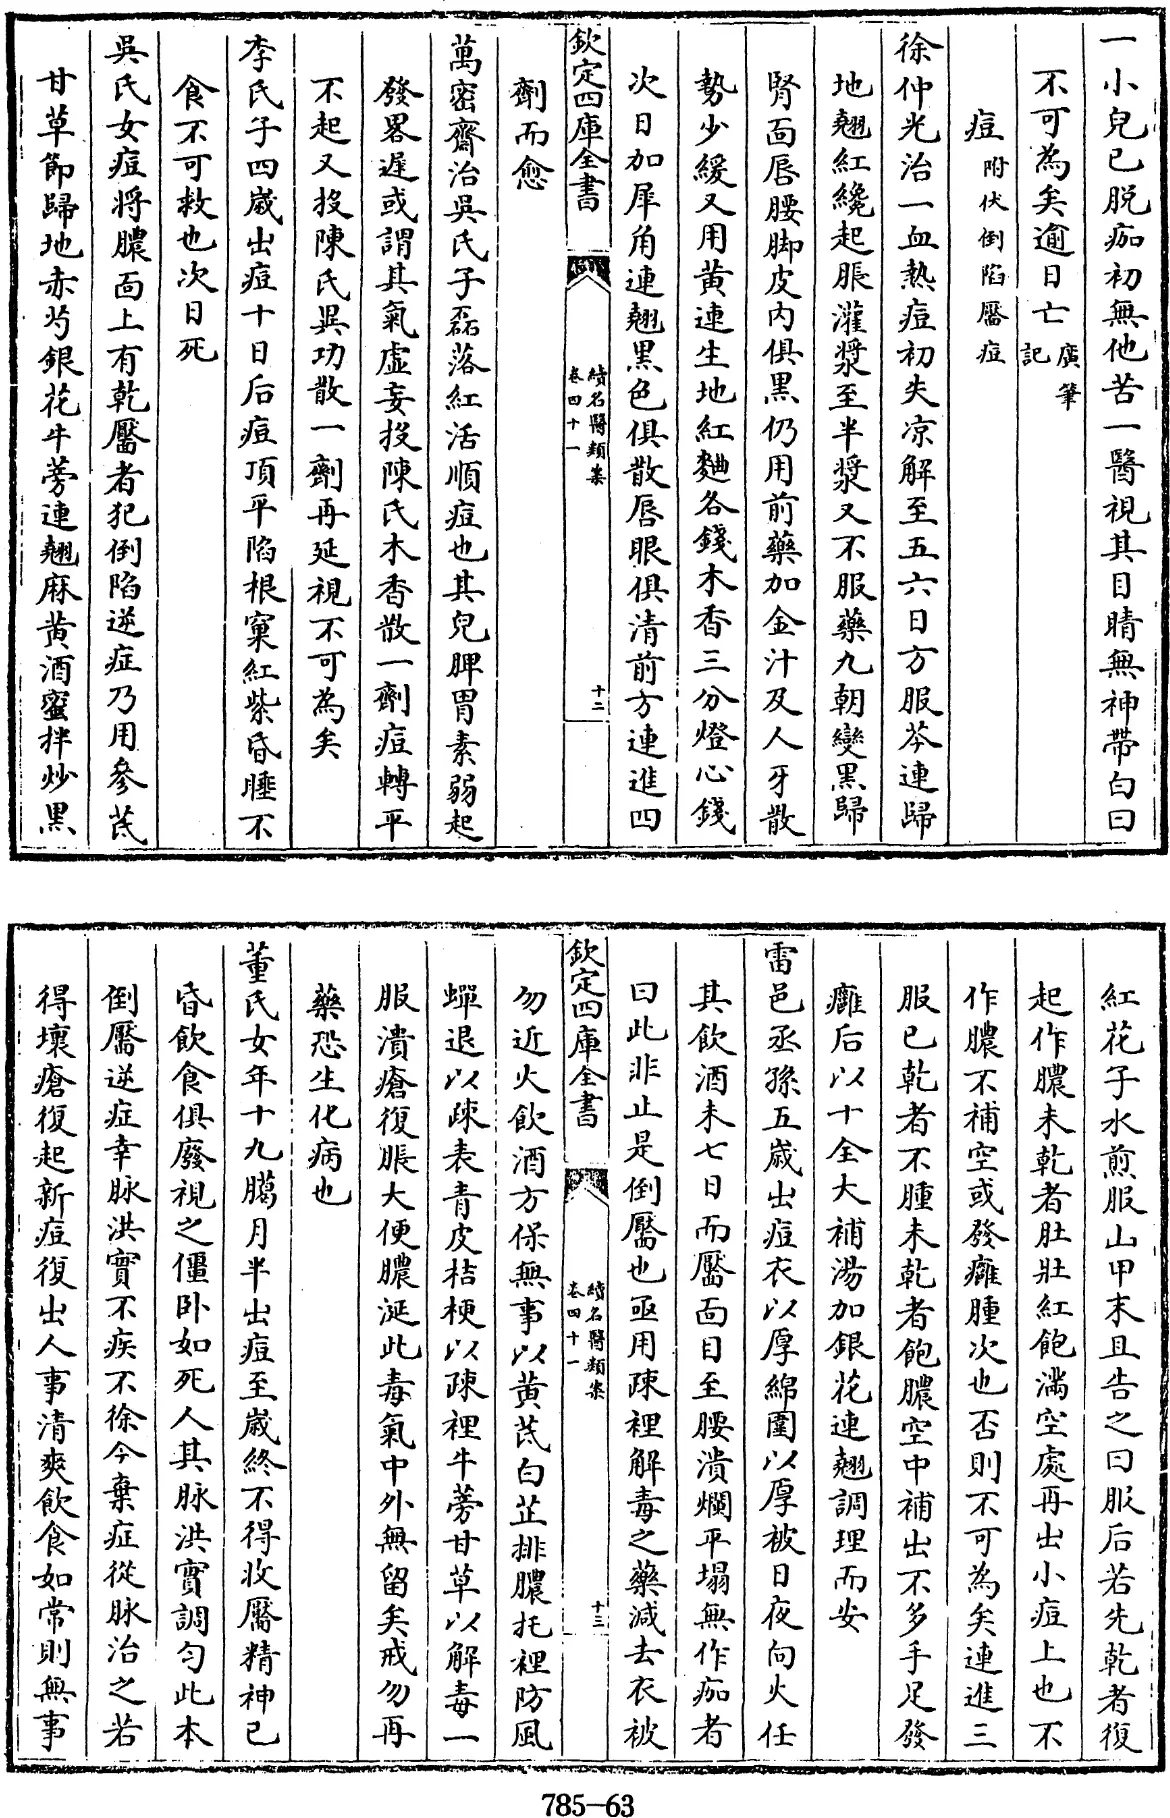 一小兒已脫痂初無他苦一醫視其目睛無神帶白曰
不可為矣逾日亡廣筆記
痘附伏倒陷靨痘
徐仲光治一血熱痘初失凉解至五六日方服芩連歸
地翹紅纔起脹灌漿至半漿又不服藥九朝變黑歸
腎面唇腰脚皮內俱黑仍用前藥加金汁及人牙散
勢少緩又用黄連生地紅麯各錢木香三分燈心錢
次日加犀角連翹黑色俱散唇眼俱清前方連進四
欽定四庫全書
續名醫類案
卷四十一
十二
劑而愈
萬密齋治吳氏子磊落紅活順痘也其兒脾胃素弱起
發畧遲或謂其氣虛妄投陳氏木香散一劑痘轉平
不起又投陳氏異功散一劑再延視不可為矣
李氏子四歲出痘十日后痘頂平陷根窠紅紫昏睡不
食不可救也次日死
吳氏女痘将膿面上有乾靨者犯倒陷逆症乃用參芪
甘草節歸地赤芍銀花牛蒡連翹麻黄酒蜜拌炒黑
紅花子水煎服山甲末且告之曰服后若先乾者復
起作膿未乾者肚壯紅飽滿空處再出小痘上也不
作膿不補空或發癰腫次也否則不可為矣連進三
服已乾者不腫未乾者飽膿空中補出不多手足發
癰后以十全大補湯加銀花連翹調理而安
雷邑丞孫五歲出痘衣以厚綿圍以厚被日夜向火任
其飲酒未七日而靨面目至腰潰爛平塌無作痂者
曰此非止是倒靨也亟用疎裡解毒之藥減去衣被
欽定四庫全書
續名醫類案
卷四十一
十三
勿近火飲酒方保無事以黄芪白芷排膿托裡防風
蟬退以疎表青皮桔梗以疎裡牛蒡甘草以解毒一
服潰瘡復脹大便膿涎此毒氣中外無留矣戒勿再
藥恐生化病也
董氏女年十九臈月半出痘至歲終不得收靨精神已
昏飲食俱廢視之僵卧如死人其脉洪實調匀此本
倒靨逆症幸脉洪實不疾不徐今棄症從脉治之若
得壞瘡復起新痘復出人事清爽飲食如常則無事
785-63